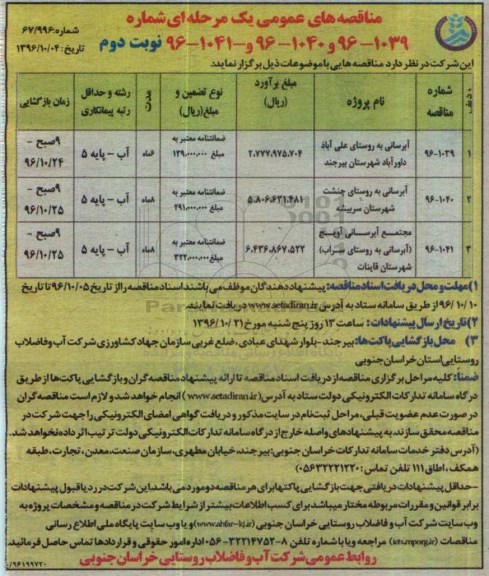 مناقصه های عمومی یک مرحله ای شماره
۱۰۳۹-۹۶ و ۱۰۴۰-۹۶ و ۱۰۴۱-۹۶ نوبت دوم
شماره: ۶۷/۹۹۶
تاریخ: ۱۳۹۶/۱۰/۰۴
این شرکت در نظر دارد مناقصه هایی با موضوعات ذیل برگزار نمایند
ردیف شماره مناقصه نام پروژه مبلغ برآورد (ریال) نوع تضمین و مبلغ(ریال) مدت رشته و حداقل رتبه پیمانکاری زمان بازگشایی
۱ ۹۶-۱۰۳۹ آبرسانی به روستای علی آباد داورآباد شهرستان بیرجند ۲.۷۷۷.۹۷۵.۷۰۴ ضمانتنامه معتبر به مبلغ ۱۳۹.۰۰۰.۰۰۰ ۶ماه آب - پایه ۵ ۹صبح - ۹۶/۱۰/۲۴
۲ ۹۶-۱۰۴۰ آبرسانی به روستای چنشت شهرستان سربیشه ۵.۸۰۶.۶۳۱.۴۸۱ ضمانتنامه معتبر به مبلغ ۲۹۱.۰۰۰.۰۰۰ ۸ماه آب - پایه ۵ ۹صبح - ۹۶/۱۰/۲۵
۳ ۹۶-۱۰۴۱ مجتمع آبرسانی آویچ (آبرسانی به روستای شهرستان قاینات ۶.۴۳۶.۸۶۷.۵۲۲ ضمانتنامه معتبر به مبلغ ۳۲۲.۰۰۰.۰۰۰ ۸ماه آب - پایه ۵ ۹صبح - ۹۶/۱۰/۲۵
۱) مهلت و محل دریافت اسناد مناقصه: پیشنهاد دهندگان موظف می باشند اسناد مناقصه را از تاریخ ۹۶/۱۰/۰۵ تا تاریخ
۹۶/۱۰/۱۰ از طریق سامانه ستاد به آدرس www.setadiran.ir دریافت نمایند.
۲) تاریخ ارسال پیشنهادات: ساعت ۱۳ روز پنج شنبه مورخ ۱۳۹۶/۱۰/۲۱
۳) محل بازگشایی پاکت ها: بیرجند-بلوار شهدای عبادی، ضلع غربی سازمان جهاد کشاورزی شرکت آب و فاضلاب
روستایی استان خراسان جنوبی
ضمنا: کلیه مراحل برگزاری مناقصه از دریافت اسناد مناقصه تا ارائه پیشنهاد مناقصه گران و بازگشایی پاکت ها از طریق
درگاه سامانه تدارکات الکترونیکی دولت ستاد به آدرس (www.setadiran.ir) انجام خواهد شد و لازم است مناقصه گران
در صورت عدم عضویت قبلی، مراحل ثبت نام در سایت مذکور و دریافت گواهی امضای الکترونیکی را جهت شرکت در
مناقصه محقق سازند. به پیشنهادهای واصله خارج از درگاه سامانه تدارکات الکترونیکی دولت ترتیب اثر داده نخواهد شد.
(آدرس دفتر خدمات سامانه تدارکات خراسان جنوبی: بیرجند، خیابان مطهری، سازمان صنعت، معدن، تجارت، طبقه
همکف، اطاق ۱۱۱ تلفن تماس: ۰۵۶۳۲۲۲۱۲۲۰)
-حداقل پیشنهادات دریافتی جهت بازگشایی پاکتها برای هر مناقصه دو مورد می باشد این شرکت در رد یا قبول پیشنهادات
برابر قوانین و مقررات مربوطه مختار میباشد برای کسب اطلاعات بیشتر از شرایط شرکت در مناقصه و مشخصات پروژه به
وب سایت شرکت آب و فاضلاب روستایی خراسان جنوبی (www.abfar-kj.ir) و یا وب سایت پایگاه ملی اطلاع رسانی
مناقصات (iets.mporg.ir) مراجعه و یا با شماره تلفن ۸-۳۲۲۱۴۷۵۲-۰۵۶ اداره امور حقوقی و قراردادها تماس حاصل فرمائید.
روابط عمومی شرکت آب و فاضلاب روستایی خراسان جنوبی